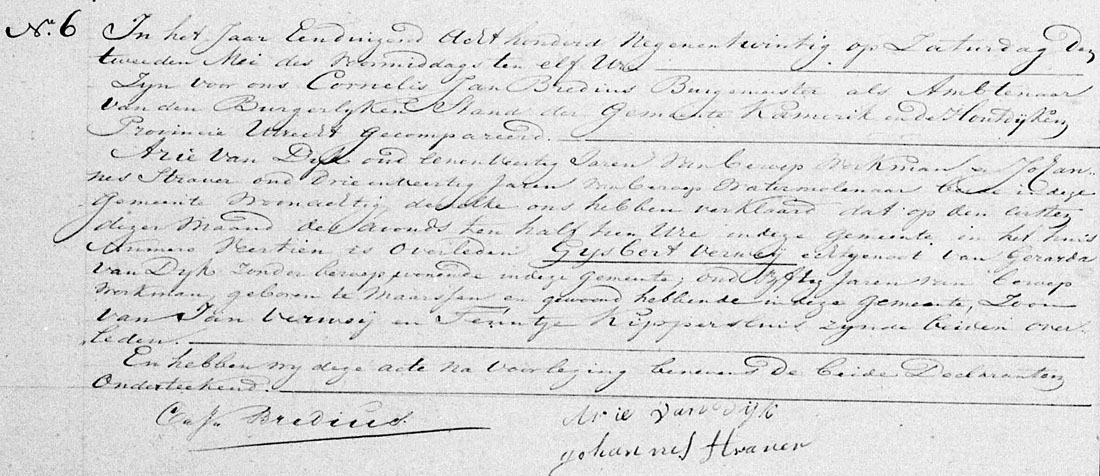 No. 6 In het Jaar Eenduizend Acht honderd Negenentwintig op Zaturdag den
tweeden Mei des voormiddags ten elf Ure
Zyn voor ons Cornelis Jan Bredius Burgemeester als Ambtenaar
van den Burgerlyken Stand der Gemeente Kamerik en de Houtdijken
Provincie Utrecht gecompareerd.
Arie Van Dyk oud eenenveertig Jaren van beroep Werkman en Johan-
nes Straver oud drie entveertig Jaren van beroep Watermolenaar beide in deze
Gemeente Woonachtig dewelke ons hebben verklaard dat op den eersten
dezer Maand des avonds ten half tien Ure in deze gemeente in het huis
Numero Veertien is Overleden Gysbert Verweij echtgenoot van Gerarda
van Dyk zonder beroep wonende in deze gemeente, oud Vyftig Jaren van beroep
Werkman, geboren te Maarssen, en gewoond hebbende in deze Gemeente, Zoon
van Jan Verweij en Teuntje Kippersluis zynde beiden over
leden.
En hebben wy deze acte na voorlezing benevens De beide Declaranten
Onderteekend.
C Jn Bredius.
Arie van dijk
johannes Straver